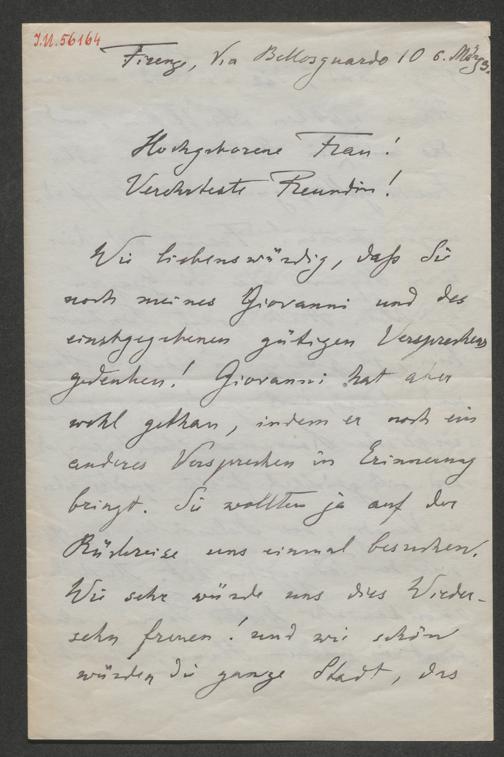 J.N. 56164
Firenze, Via Bellosguardo 10 6. März
Hochgeborene Frau!
Verehrteste Freundin!
Wie liebenswürdig, daß Sie
noch meines Giovanni und des
einstgegebenen gütigen Versprechens
gedenken! Giovanni hat aber
wohl gethan, indem er noch ein
anderes Versprechen in Erinnerung
bringt. Sie wollten ja auf der
Rückreise uns einmal besuchen.
Wie sehr würde uns dies Wieder-
sehn freuen! und wie schön
würden die ganze Stadt, das